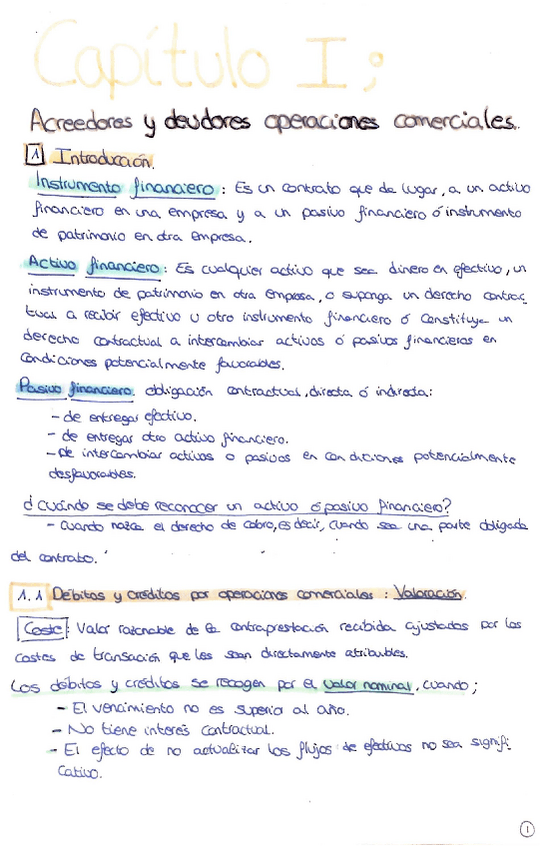 Capítulo I;
Acreedores y deudores operaciones comerciales.
1 Introducción.
Instrumento financiero: Es un contrato que da lugar, a un activo
financiero en una empresa y a un pasivo financiero ó instrumento
de patrimonio en otra empresa.
Activo financiero: Es cualquier activo que sea dinero en efectivo, un
instrumento de patrimonio en otra empresa, o suponga un derecho contrac
tual a recibir efectivo u otro instrumento financiero ó constituye un
derecho contractual a intercambiar activos ó pasivos financieros en
condiciones potencialmente favorables.
Pasivo financiero: obligación contractual, directa ó indirecta:
- de entregar efectivo.
- de entregar otro activo financiero.
- de intercambiar activos o pasivos en condiciones potencialmente
desfavorables.
¿Cuándo se debe reconocer un activo ó pasivo financiero?
- Cuando nazca el derecho de cobro, es decir, cuando sea una parte obligada
del contrato.
1.1 Débitos y créditos por operaciones comerciales: Valoración.
Coste: Valor razonable de la contraprestación recibida ajustados por los
costes de transación que les sean directamente atribuibles.
Los débitos y créditos se recogen por el valor nominal, cuando;
- El vencimiento no es superior al año.
- No tiene interés contractual.
- El efecto de no actualizar los flujos de efectivos no sea signifi
cativo.
1